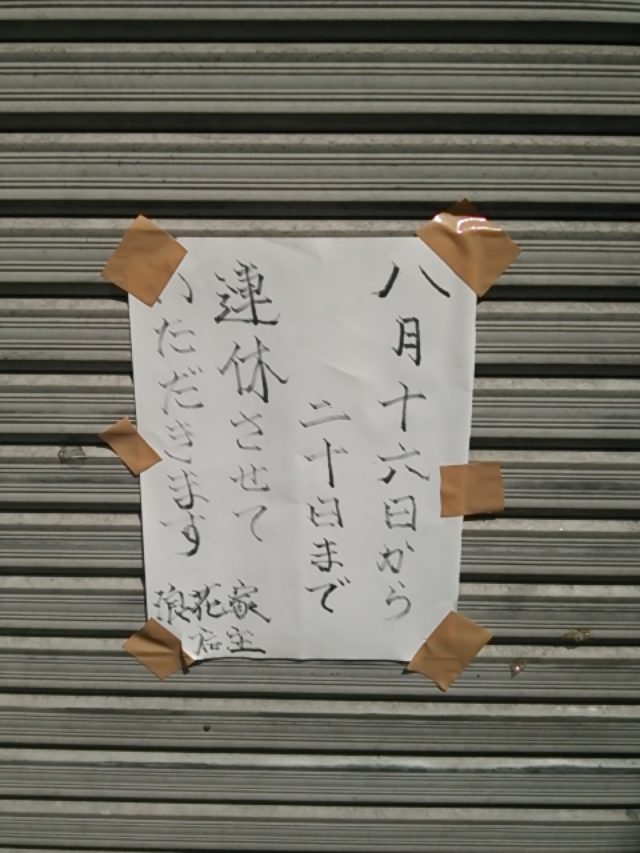 八月十六日から
二十日まで
連休させて
いただきます
浪花家
店主